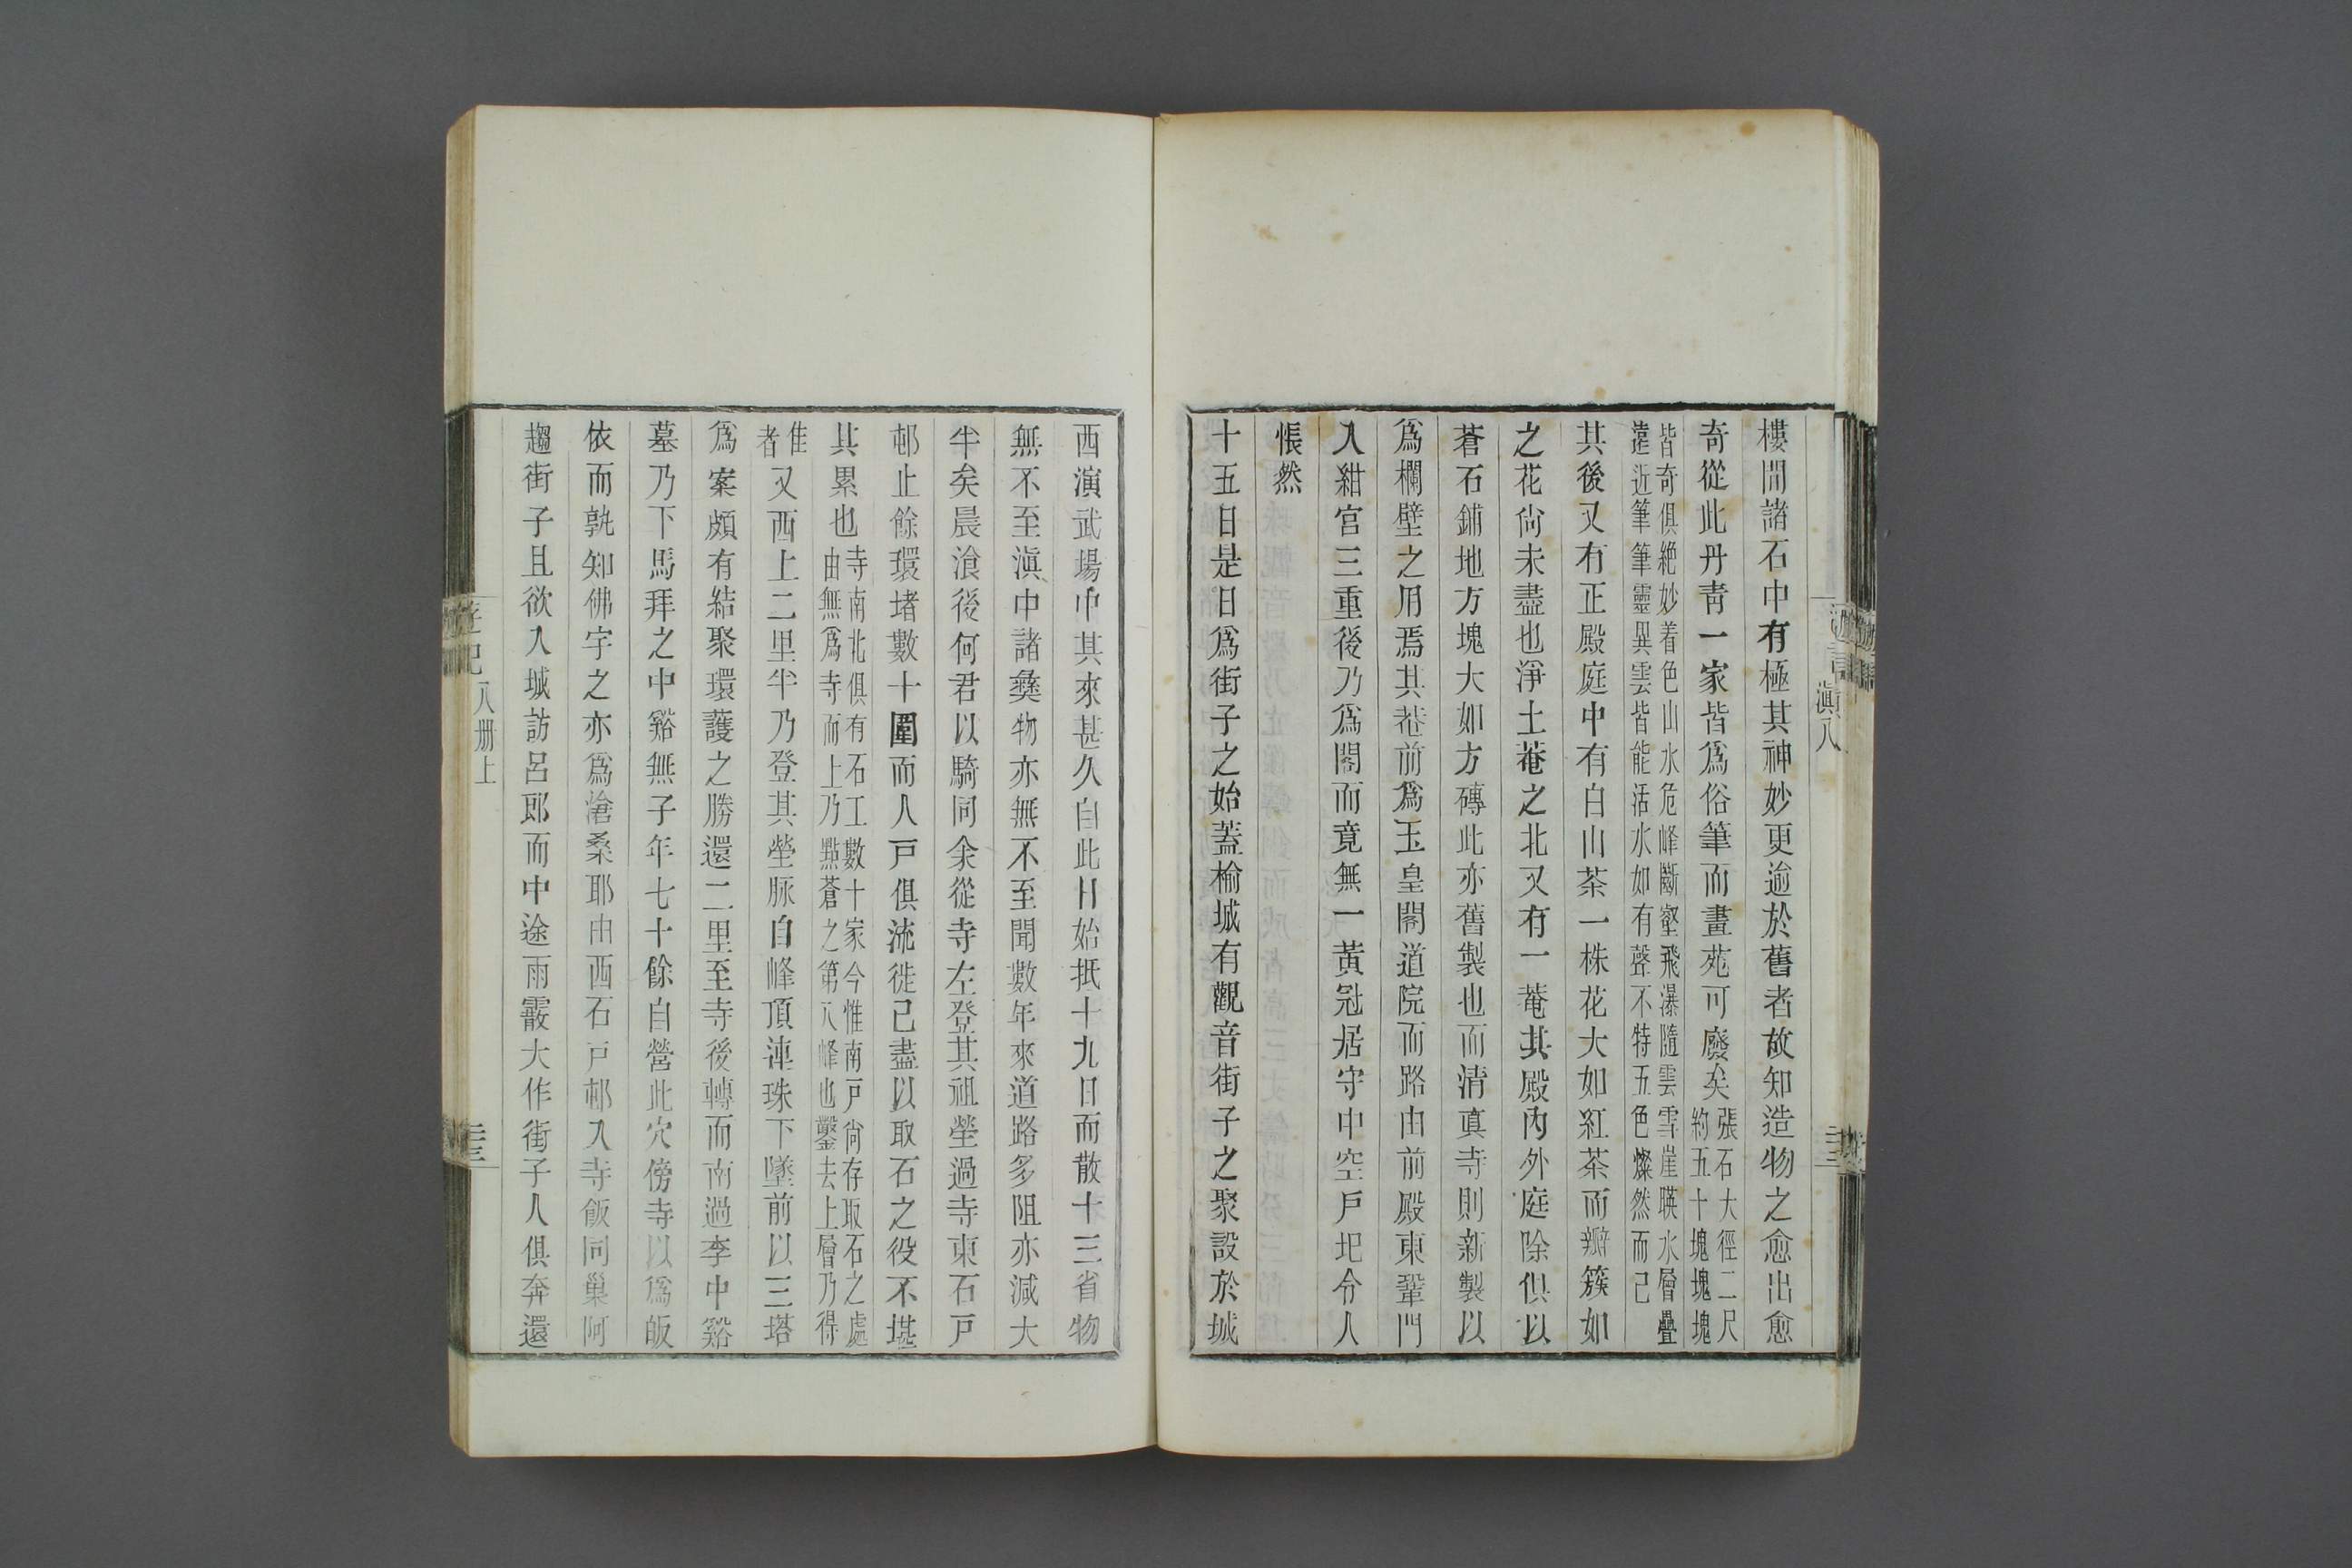 樓閒諸石中有極其神妙更逾於舊者故知造物之愈出愈
奇從此丹青一家皆爲俗筆而畫苑可廢矣張石大徑二尺
約五十塊塊塊
皆奇俱絶妙着色山水危峰斷壑飛瀑隨雲雪崖暎水層疊
遠近筆筆靈異雲皆能活水如有聲不特五色燦然而已
其後又有正殿庭中有白山茶一株花大如紅茶而瓣簇如
之花尙未盡也淨土菴之北又有一菴其殿內外庭除俱以
蒼石鋪地方塊大如方磚此亦舊製也而清真寺則新製以
爲欄壁之用焉其菴前爲玉皇閣道院而路由前殿東鞏門
入紺宮三重後乃爲閣而竟無一黃冠居守中空戶圯令人
悵然
十五日是日爲街子之始蓋榆城有觀音街子之聚設於城
西演武場中其來甚久自此日始抵十九日而散十三省物
無不至滇中諸彝物亦無不至聞數年來道路多阻亦減大
半矣晨湌後何君以騎同余從寺左登其祖塋過寺東石戶
邨止餘環堵數十圍而人戶俱流徙已盡以取石之役不堪
其累也寺南北俱有石工數十家今惟南戶尙存取石之處
由無爲寺而上乃點蒼之第八峰也鑿去上層乃得
佳
者又西上二里半乃登其塋脉自峰頂連珠下墜前以三塔
爲案頗有結聚環護之勝還二里至寺後轉而南過李中谿
墓乃下馬拜之中谿無子年七十餘自營此穴傍寺以爲皈
依而孰知佛宇之亦爲滄桑耶由西石戶邨入寺飯同巢阿
趨街子且欲入城訪呂郎而中途雨霰大作街子人俱奔還
滇八
遊記
八册上